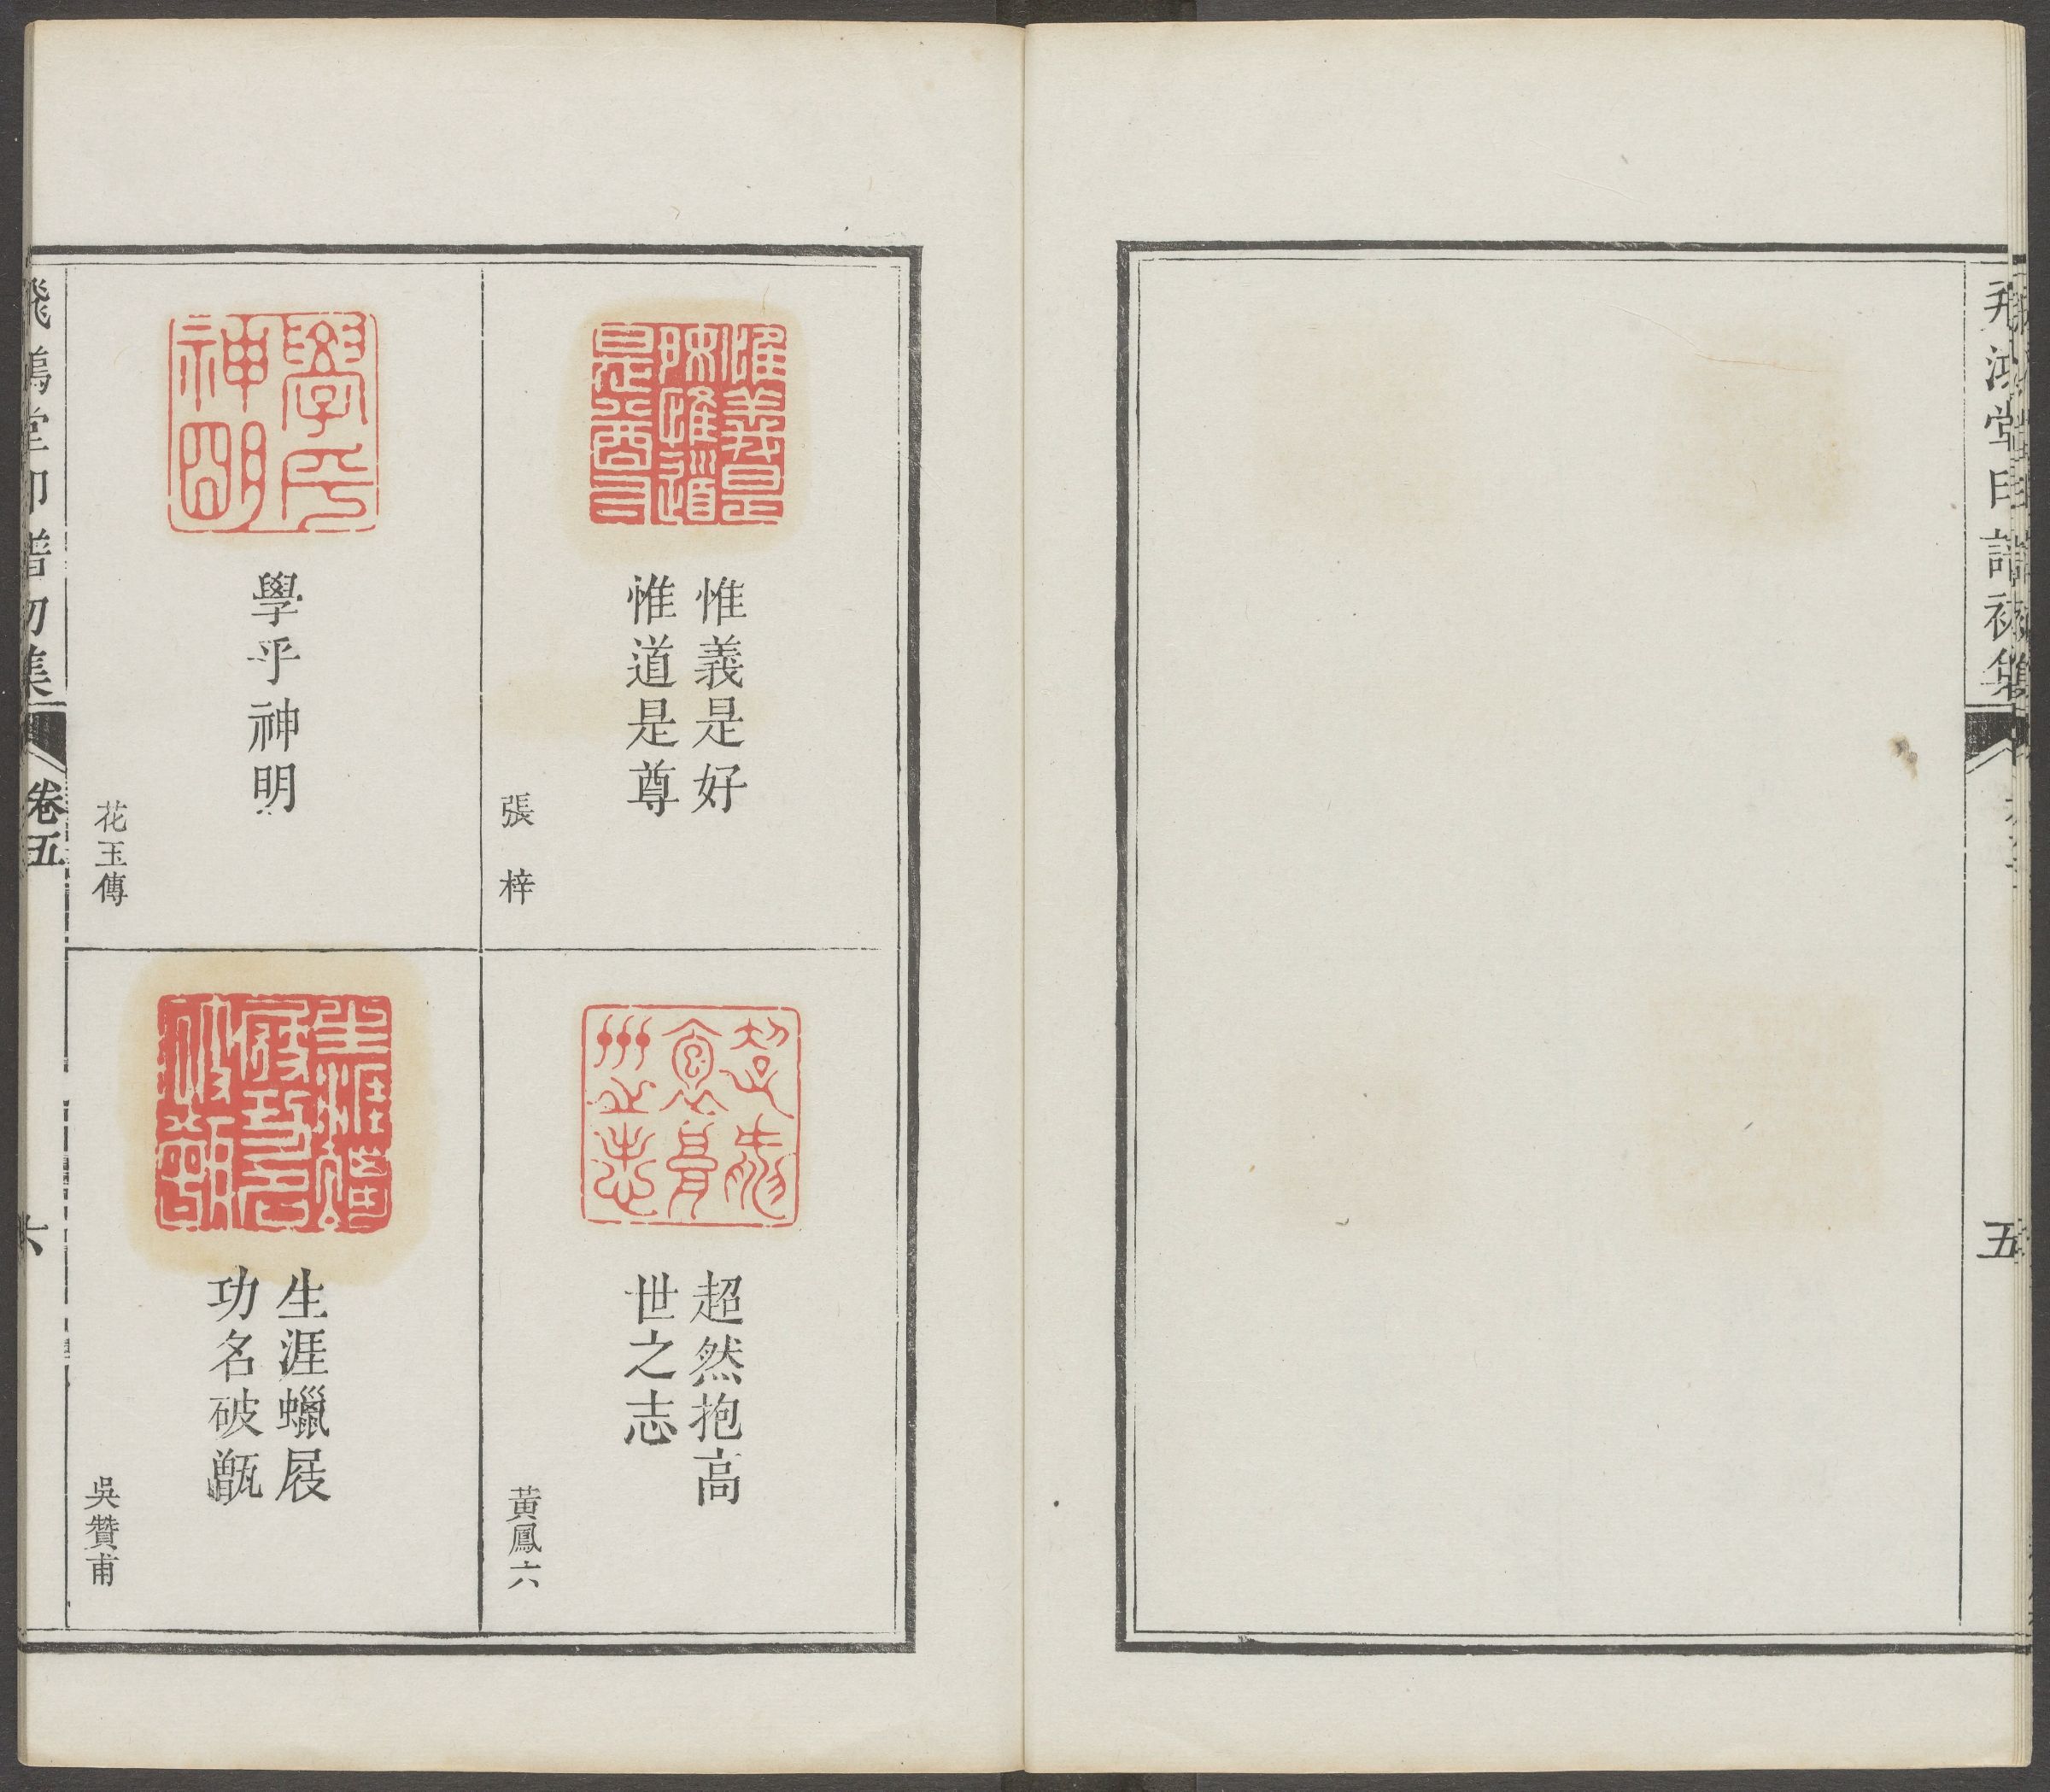 飛鴻堂印譜初集
五
惟義是好
惟道是尊
張梓
超然抱高
世之志
黃鳳六
學乎神明
花玉傳
生涯蠟屐
功名破甑
吳贊甫
飛鴻堂印譜初集
卷五
六